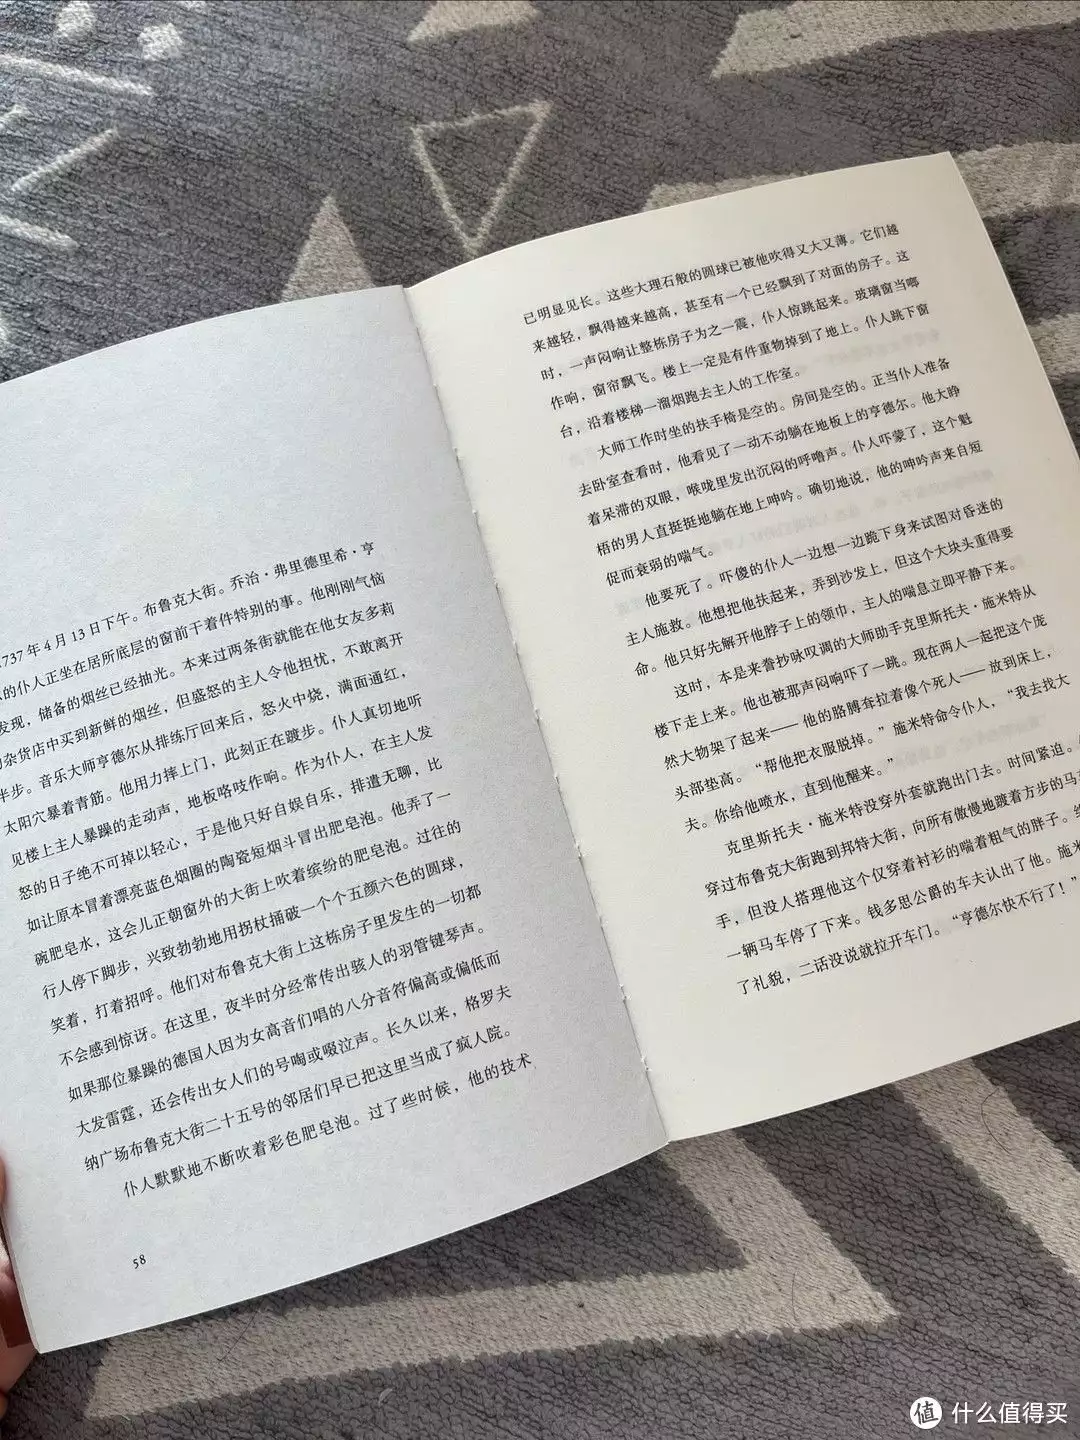 737 年 4 月 13 日下午。布鲁克大街。乔治·弗里德里希·亨
的仆人正坐在居所底层的窗前干着件特别的事。他刚刚气恼
发现，储备的烟丝已经抽光。本来过两条街就能在他女友多莉
杂货店中买到新鲜的烟丝，但盛怒的主人令他担忧，不敢离开
半步。音乐大师亨德尔从排练厅回来后，怒火中烧，满面通红，
太阳穴暴着青筋。他用力摔上门，此刻正在踱步。仆人真切地听
见楼上主人暴躁的走动声，地板咯吱作响。作为仆人，在主人发
怒的日子绝不可掉以轻心，于是他只好自娱自乐，排遣无聊，比
如让原本冒着漂亮蓝色烟圈的陶瓷短烟斗冒出肥皂泡。他弄了一
碗肥皂水，这会儿正朝窗外的大街上吹着缤纷的肥皂泡。过往的
行人停下脚步，兴致勃勃地用拐杖捅破一个个五颜六色的圆球，
笑着，打着招呼。他们对布鲁克大街上这栋房子里发生的一切都
不会感到惊讶。在这里，夜半时分经常传出骇人的羽管键琴声。
如果那位暴躁的德国人因为女高音们唱的八分音符偏高或偏低而
大发雷霆，还会传出女人们的号啕或啜泣声。长久以来，格罗夫
纳广场布鲁克大街二十五号的邻居们早已把这里当成了疯人院。
仆人默默地不断吹着彩色肥皂泡。过了些时候，他的技术
58
已明显见长。这些大理石般的圆球已被他吹得又大又薄。它们越
来越轻，飘得越来越高，甚至有一个已经飘到了对面的房子。这
时，一声闷响让整栋房子为之一震，仆人惊跳起来。玻璃窗当啷
作响，窗帘飘飞。楼上一定是有件重物掉到了地上。仆人跳下窗
台，沿着楼梯一溜烟跑去主人的工作室。
大师工作时坐的扶手椅是空的。房间是空的。正当仆人准备
去卧室查看时，他看见了一动不动躺在地板上的亨德尔。他大睁
着呆滞的双眼，喉咙里发出沉闷的呼噜声。仆人吓蒙了，这个魁
梧的男人直挺挺地躺在地上呻吟。确切地说，他的呻吟声来自短
促而衰弱的喘气。
他要死了。吓傻的仆人一边想一边跪下身来试图对昏迷的
主人施救。他想把他扶起来，弄到沙发上，但这个大块头重得要
命。他只好先解开他脖子上的领巾，主人的喘息立即平静下来。
这时，本是来誊抄咏叹调的大师助手克里斯托夫·施米特从
楼下走上来。他也被那声闷响吓了一跳。现在两人一起把这个庞
然大物架了起来——他的胳膊耷拉着像个死人——放到床上，
头部垫高。“帮他把衣服脱掉。”施米特命令仆人，“我去找大
夫。你给他喷水，直到他醒来。”
克里斯托夫·施米特没穿外套就跑出门去。时间紧迫。
穿过布鲁克大街跑到邦特大街，向所有傲慢地踱着方步的马
手，但没人搭理他这个仅穿着衬衫的喘着粗气的胖子。
一辆马车停了下来。钱多思公爵的车夫认出了他。施米
了礼貌，二话没说就拉开车门。“亨德尔快不行了！”
值 什么值得买